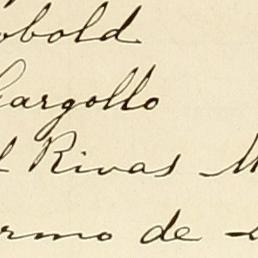 obold
Gargollo
l Rivas M
rmo de